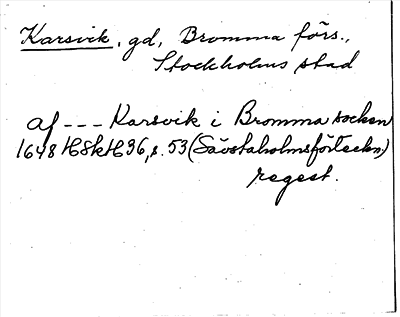 Karsvik, gd, Bromma förs.,
Stockholms stad
af --- Karsvik i Bromma socken
1648 H8k H36, s. 53 (Sävstaholmsförteckn)
regest.